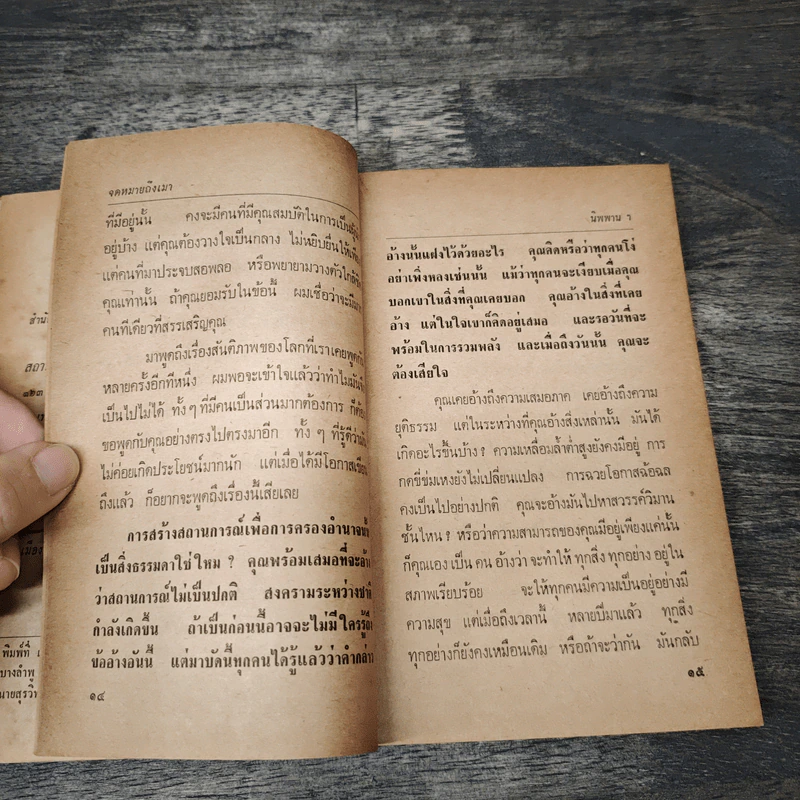 จดหมายถึงเมา
ที่มีอยู่นั้น คงจะมีคนที่มีคุณสมบัติในการเป็น
อยู่บ้าง แต่คุณต้องวางใจเป็นกลาง ไม่หยิบยื่นให้เพียง
แต่คนที่มาประจบสอพลอ หรือพยายามวางตัวใกล้ชิด
คุณเท่านั้น ถ้าคุณยอมรับในข้อนี้ ผมเชื่อว่าจะมี
คนทีเดียวที่สรรเสริญคุณ
มาพูดถึงเรื่องสันติภาพของโลกที่เราเคยพูดกัน
หลายครั้งอีกทีหนึ่ง ผมพอจะเข้าใจแล้วว่าทำไมมัน
เป็นไปไม่ได้ ทั้ง ๆ ที่มีคนเป็นส่วนมากต้องการ ก็ต้อง
ขอพูดกับคุณอย่างตรงไปตรงมาอีก ทั้ง ๆ ที่รู้ดีว่า
ไม่ค่อยเกิดประโยชน์มากนัก แต่เมื่อได้มีโอกาสเขียน
ถึงแล้ว ก็อยากจะพูดถึงเรื่องนี้เสียเลย
การสร้างสถานการณ์เพื่อการครองอำนาจนั้น
เป็นสิ่งธรรมดาใช่ไหม ? คุณพร้อมเสมอที่จะอ้าง
ว่าสถานการณ์ไม่เป็นปกติ สงครามระหว่างชาติ
กำลังเกิดขึ้น ถ้าเป็นก่อนนี้อาจจะไม่มีใครรู้ถึง
ข้ออ้างอันนี้ แต่มาบัดนี้ทุกคนได้รู้แล้วว่าคำกล่าว
๑๔
๑๒๓
เมือง
พิมพ์ที่
บางลำพู
นายสุรวิท
นิพพาน ว
อ้างนั้นแฝงไว้ด้วยอะไร คุณคิดหรือว่าทุกคนโง่
อย่าเพิ่งหลงเช่นนั้น แม้ว่าทุกคนจะเงียบเมื่อคุณ
บอกเขาในสิ่งที่คุณเคยบอก คุณอ้างในสิ่งที่เคย
อ้าง แต่ในใจเขาก็คิดอยู่เสมอ และรอวันที่จะ
พร้อมในการรวมพลัง และเมื่อถึงวันนั้น คุณจะ
ต้องเสียใจ
คุณเคยอ้างถึงความเสมอภาค เคยอ้างถึงความ
ยุติธรรม แต่ในระหว่างที่คุณอ้างสิ่งเหล่านั้น มันได้
เกิดอะไรขึ้นบ้าง ? ความเหลื่อมล้ำต่ำสูงยังคงมีอยู่ การ
กดขี่ข่มเหงยังไม่เปลี่ยนแปลง การฉวยโอกาสฉ้อฉล
คงเป็นไปอย่างปกติ คุณจะอ้างมันไปหาสวรรค์วิมาน
ชั้นไหน ? หรือว่าความสามารถของคุณมีอยู่เพียงแค่นั้น
ก็คุณเอง เป็น คน อ้างว่า จะทำให้ ทุกสิ่ง ทุกอย่าง อยู่ใน
สภาพเรียบร้อย จะให้ทุกคนมีความเป็นอยู่อย่างมี
ความสุข แต่เมื่อถึงเวลานี้ หลายปีมาแล้ว ทุกสิ่ง
ทุกอย่างก็ยังคงเหมือนเดิม หรือถ้าจะว่ากัน มันกลับ
๑๕